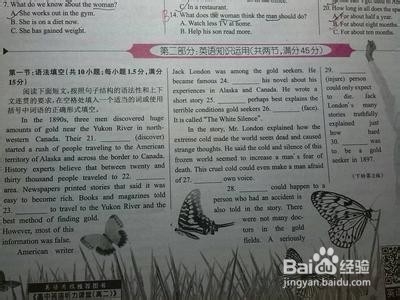 7. What do we know about the woman?
A. She works out in the gym.
B. She is on a diet now.
C. She has gained weight.
C. In a restaurant.
14. What does the woman think the man should do?
A. Watch less TV at home.
B. Help his son read more.
20. How long
A. For about half a year.
B. For about eight months.
第二部分:英语知识运用(共两节,满分45分)
第一节:语法填空(共10小题;每小题1.5分,满分15分)
阅读下面短文,按照句子结构的语法性和上下文连贯的要求,在空格处填入一个适当的词或使用括号中词语的正确形式填空。
In the 1890s, three men discovered huge
amounts of gold near the Yukon River in north-
western Canada. Their 21. (discover)
started a rush of people traveling to the American
territory of Alaska and across the border to Canada.
History experts believe that between twenty and
thirty thousand people traveled to 22.
area. Newspapers printed stories that said it was
easy to become rich. Books and magazines told
23. to travel to the Yukon River and the
best method of finding gold. However, most of
this information was false.
American writer
Jack London was among the gold seekers. He
became famous 24. his novel about his
experiences in Alaska and Canada. He wrote a
short story 25. perhaps best explains the
terrible conditions gold seekers 26. (face).
It is called "The White Silence".
In the story, Mr. London explained how the
extreme cold made the world seem dead and caused
strange thoughts. He said the cold and silence of this
frozen world seemed to increase a man's fear of
death. This cruel cold could even make a man afraid
of 27. own voice.
28. could happen to a
person who had an accident is
also told in the story. There
were not many doc-
tors in the gold
fields. A seriously
29.
(injure) person
could only expect
to die. Jack
London's many
stories truthfully
explained just
how hard
30. was
to be a gold
seeker in 1897.
英语周报推荐图书
《高中英语听力课堂(高二)》
Baidu 百度 经验
jingyan.baidu.com